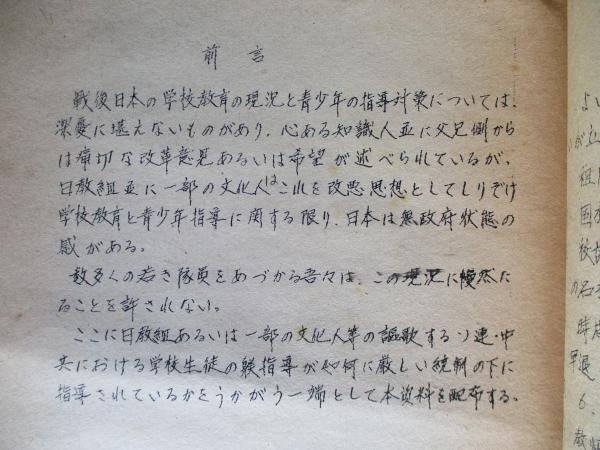 前言
戦後日本の学校教育の現況と青少年の指導対策については、
深憂に堪えないものがあり、心ある知識人並に父兄側から
は痛切な改革意見あるいは希望が述べられているが、
日教組並に一部の文化人はこれを改悪思想としてしりぞけ
学校教育と青少年指導に関する限り、日本は無政府状態の
感がある。
数多くの若き隊員をあづかる吾々は、この現況に漫然た
ることを許されない。
ここに日教組あるいは一部の文化人等の謳歌するソ連・中
共における学校生徒の躾指導が如何に厳しい統制の下に
指導されているかをうかがう一端として本資料を配布する。
よい
が立
祖
国
校
の名
時
早退
6.
教